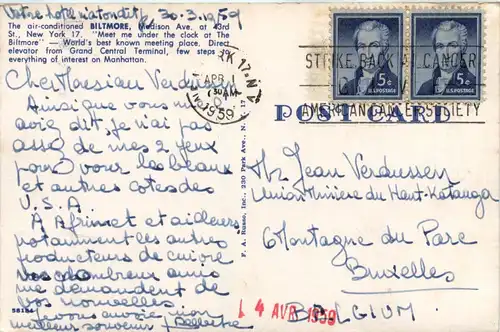 Votre hôtel 30.3.1959
The air-conditioned BILTMORE, Madison Ave. at 43rd
St., New York 17. "Meet me under the clock at The
Biltmore" — World's best known meeting place. Direct
elevator from Grand Central Terminal, few steps to
everything of interest on Manhattan.
Cher Verdussen
Ainsi que vous m'
aviez dit, je n'ai pas
assez de mes 2 yeux
pour voir les beaux
et autres côtés des
U.S.A
A et ailleurs
notamment les autres
producteurs de cuivre
vos nombreux amis
me demandent de
vos nouvelles
58184
Je vous envoie mon
meilleur souvenir
F. A. Russo, Inc., 230 Park Ave., N. Y. 17
APR 1
130 AM
1959
17 N.Y.
STRIKE BACK CANCER
AMERICAN CANCER SOCIETY
5¢
U.S. POSTAGE
5¢
U.S. POSTAGE
POST CARD
Mr Jean Verdussen
Union Minière du Haut-Katanga
Montagne du Parc
Bruxelles
BELGIUM
4 AVR 1959